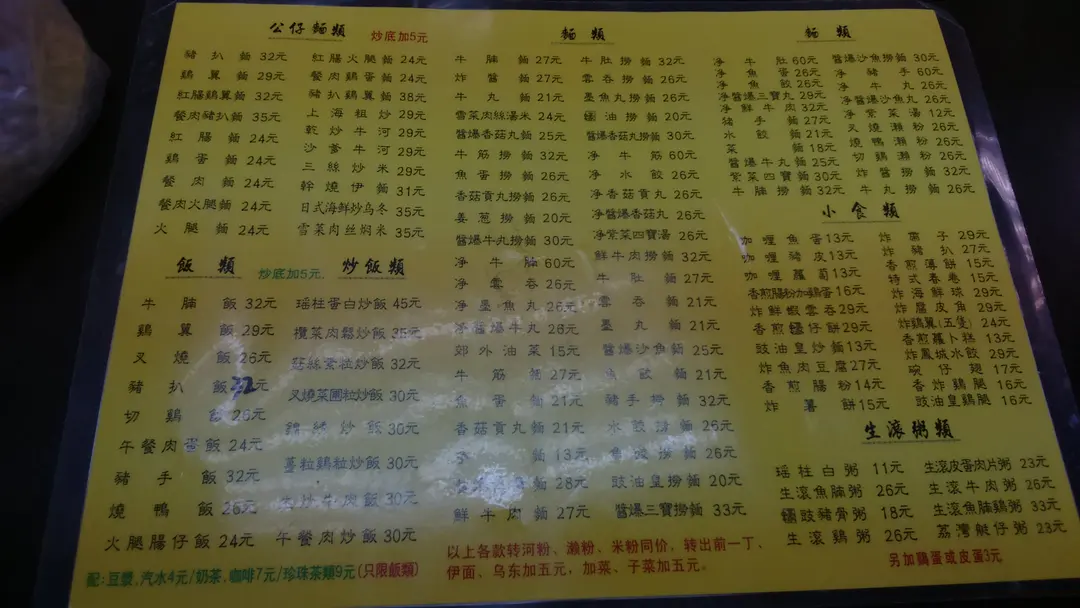 公仔麵類 炒底加5元
豬扒麵 32元
鷄翼麵 29元
紅腸鷄翼麵 32元
餐肉豬扒麵 35元
紅腸麵 24元
鷄蛋麵 24元
餐肉麵 24元
餐肉火腿麵 24元
火腿麵 24元
紅腸火腿麵 24元
餐肉鷄蛋麵 24元
豬扒鷄翼麵 38元
上海粗炒 29元
乾炒牛河 29元
沙爹牛河 29元
三絲炒米 29元
幹燒伊麵 31元
日式海鮮炒乌冬 35元
雪菜肉丝焖米 35元
飯類 炒底加5元
牛腩飯 32元
鷄翼飯 29元
叉燒飯 26元
豬扒飯 32元
切鷄飯 26元
午餐肉蛋飯 24元
豬手飯 32元
燒鴨飯 26元
火腿腸仔飯 24元
炒飯類
瑶柱蛋白炒飯 45元
欖菜肉鬆炒飯 35元
菇絲素粒炒飯 32元
叉燒菜圃粒炒飯 30元
錦綉炒飯 30元
薑粒鷄粒炒飯 30元
生炒牛肉飯 30元
午餐肉炒飯 30元
配:豆漿,汽水4元/奶茶,咖啡7元/珍珠茶類9元(只限飯類)
麵類
牛腩麵 27元
炸醬麵 27元
牛丸麵 21元
雪菜肉絲湯米 24元
醬爆香菇丸麵 25元
牛筋撈麵 32元
魚蛋撈麵 26元
香菇貢丸撈麵 26元
姜葱撈麵 20元
醬爆牛丸撈麵 30元
净牛腩 60元
净雲吞 26元
净墨魚丸 26元
净醬爆牛丸 26元
郊外油菜 15元
牛筋麵 27元
魚蛋麵 21元
香菇貢丸麵 21元
净麵 13元
麵 28元
鮮牛肉麵 27元
牛肚撈麵 32元
雲吞撈麵 26元
墨魚丸撈麵 26元
鯪油撈麵 20元
醬爆香菇丸撈麵 30元
净牛筋 60元
净水餃 26元
净香菇貢丸 26元
净醬爆香菇丸 26元
净紫菜四寶湯 26元
鮮牛肉撈麵 32元
牛肚麵 27元
雲吞麵 21元
墨丸麵 21元
醬爆沙魚麵 25元
魚餃麵 21元
豬手撈麵 32元
水餃撈麵 26元
魚餃撈麵 26元
豉油皇撈麵 20元
醬爆三寶撈麵 33元
以上各款转河粉、濑粉、米粉同价,转出前一丁、
伊面、乌东加五元,加菜、子菜加五元。
麵類
净牛肚 60元
净魚蛋 26元
净魚餃 26元
净醬爆三寶丸 29元
净鮮牛肉 32元
豬手麵 27元
水餃麵 21元
菜麵 18元
醬爆牛丸麵 25元
紫菜四寶麵 30元
牛腩撈麵 32元
醬爆沙魚撈麵 30元
净豬手 60元
净牛丸 26元
净醬爆沙魚丸 26元
净紫菜湯 12元
叉燒瀨粉 26元
燒鴨瀨粉 26元
切鷄瀨粉 26元
炸醬撈麵 32元
牛丸撈麵 26元
小食類
咖喱魚蛋 13元
咖喱豬皮 13元
咖喱蘿蔔 13元
香煎腸粉加鷄蛋 16元
炸鮮蝦雲吞 29元
香煎鯪仔餅 29元
豉油皇炒麵 13元
炸魚肉豆腐 27元
香煎腸粉 14元
炸薯餅 15元
炸雲子 29元
炸豬扒 27元
香煎薄餅 15元
特式春卷 15元
炸海鮮球 29元
炸腐皮角 29元
炸鷄翼(五隻) 24元
香煎蘿卜糕 13元
炸鳳城水餃 29元
碗仔翅 17元
香炸鷄腿 16元
豉油皇鷄腿 16元
生滚粥類
瑶柱白粥 11元
生滚魚腩粥 26元
鯪豉豬骨粥 18元
生滚鷄粥 26元
生滚皮蛋肉片粥 23元
生滚牛肉粥 26元
生滚魚腩鷄粥 33元
荔灣艇仔粥 23元
另加鷄蛋或皮蛋3元